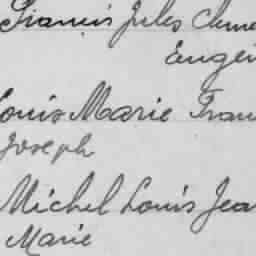 Francis Jules Cleme
Eugèn
Louis Marie Fran
Joseph
Michel Louis Jea
Marie